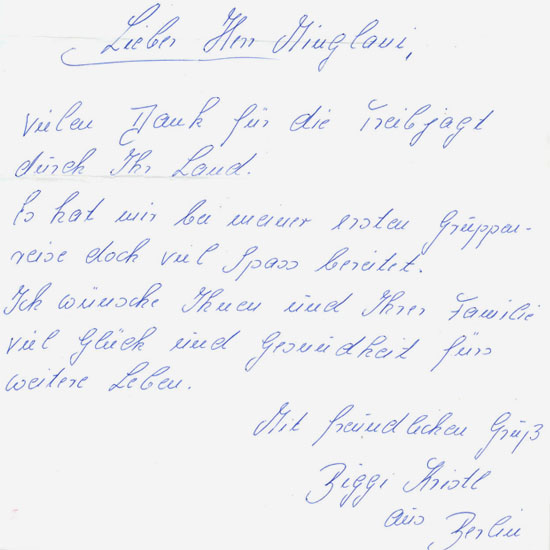 Lieber Herr Minglani,
vielen Dank für die Treibjagt
durch Ihr Land.
Es hat mir bei meiner ersten Gruppen-
reise doch viel Spass bereitet.
Ich wünsche Ihnen und Ihrer Familie
viel Glück und Gesundheit fürs
weitere Leben.
Mit freundlichen Gruß
Biggi Kristl
aus Berlin